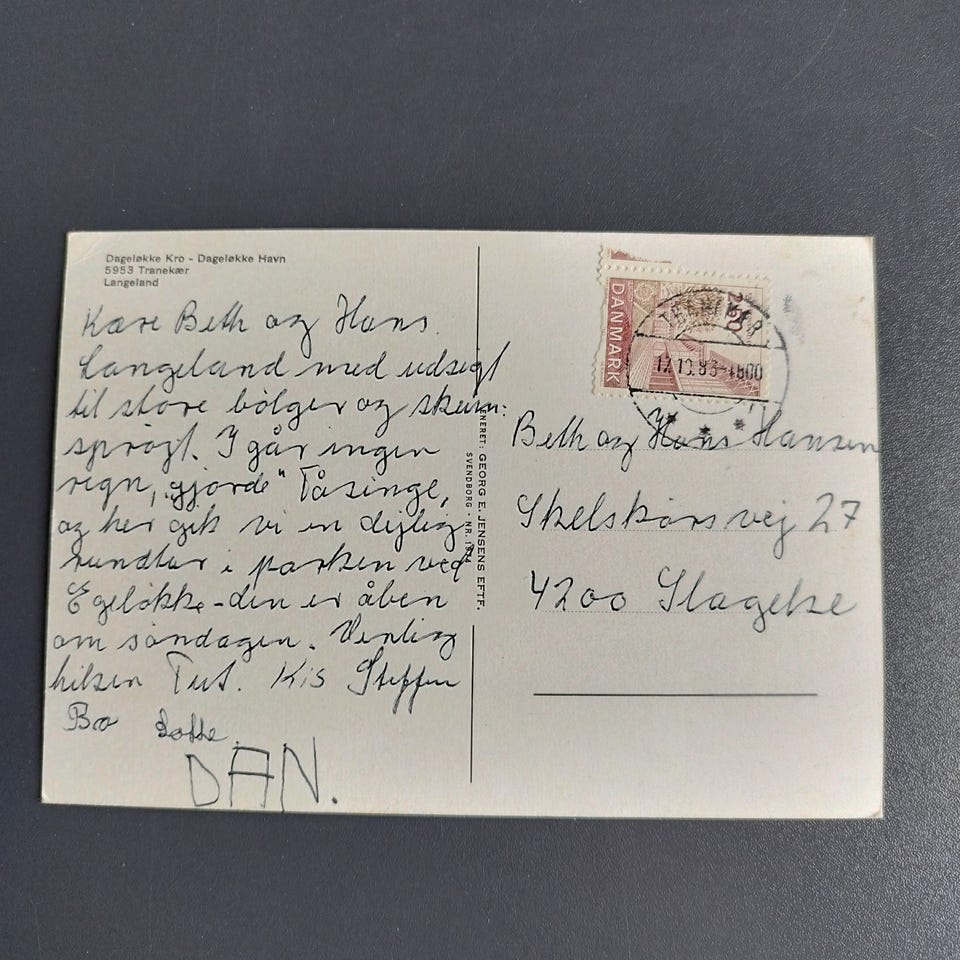 Dageløkke Kro - Dageløkke Havn
5953 Tranekær
Langeland
Kære Beth og Hans.
Langeland med udsigt
til store bølger og skum-
sprøjt. I går ingen
regn, "gjorde" Tåsinge,
og her gik vi en dejlig
rundtur i parken ved
Egeløkke - den er åben
om søndagen. Venlig
hilsen Tut. Kis Steffen
Bo Lotte.
DAN.
ENERET: GEORG E. JENSENS EFTF.
SVENDBORG - NR.
DANMARK
TRANEKÆR
17.10.83-1800
Beth og Hans Hansen
Skelskørsvej 27
4200 Slagelse